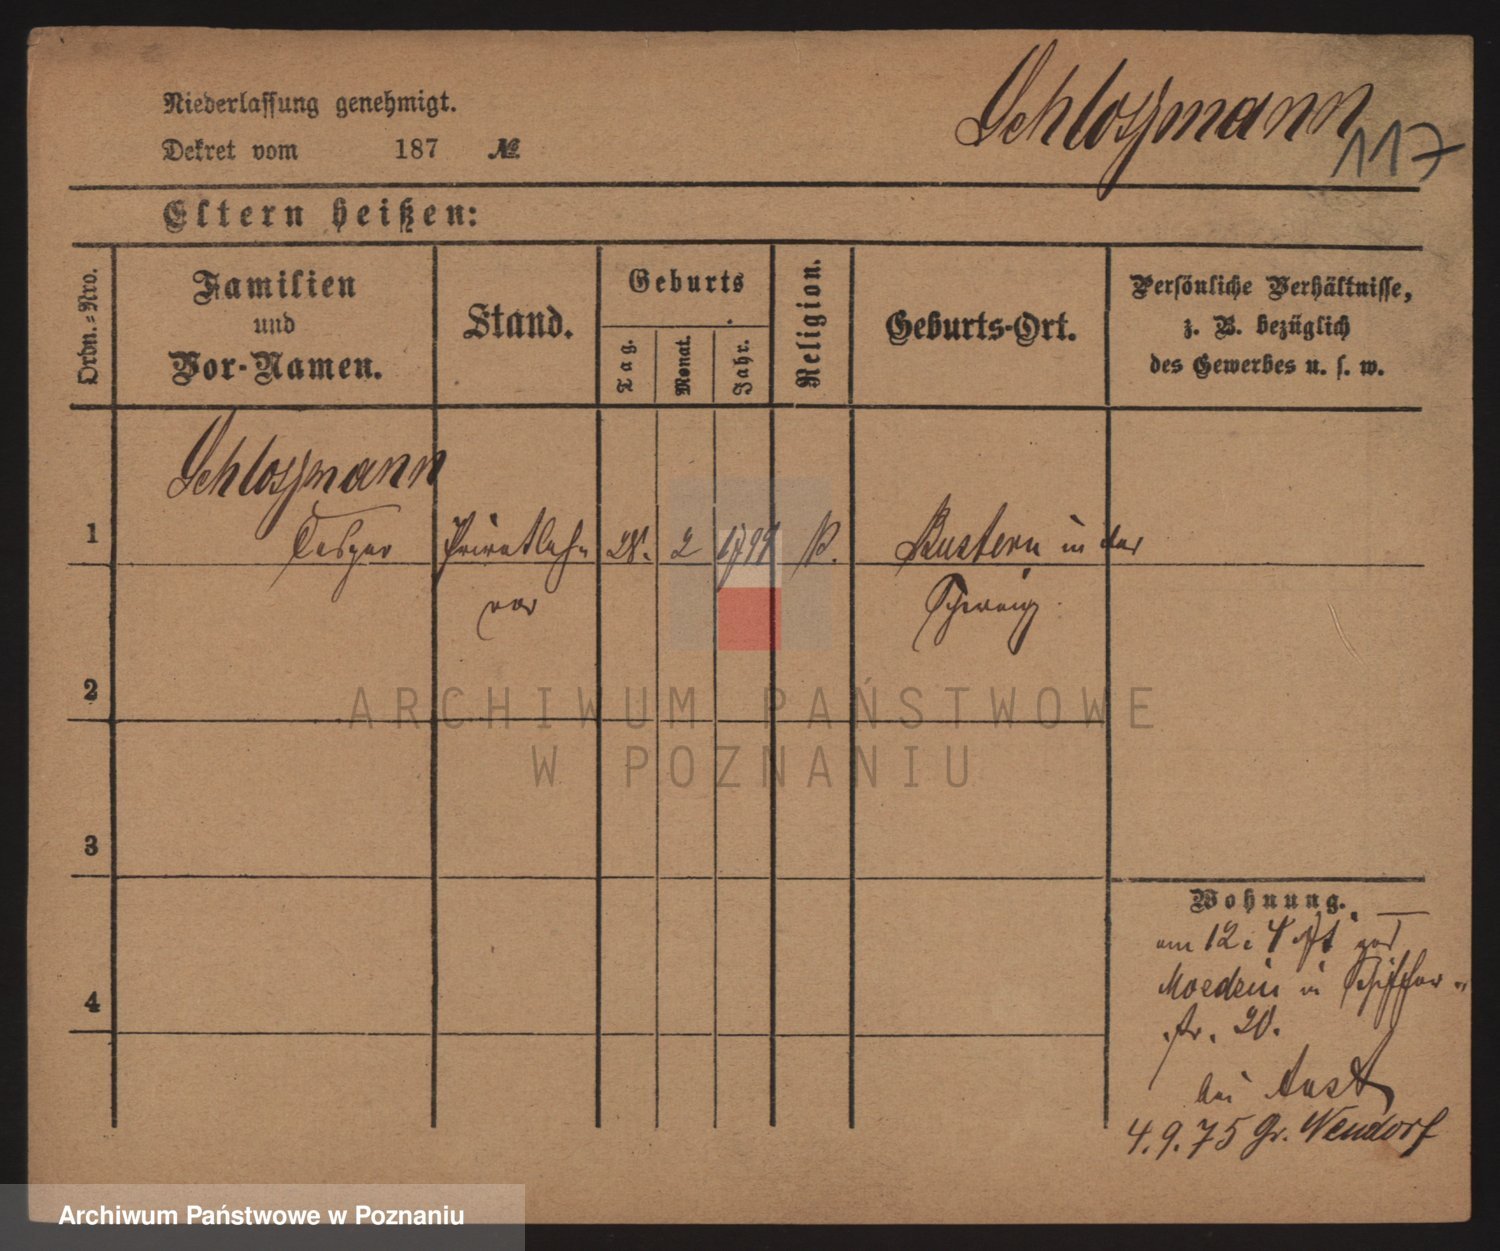 Schlossmann
117
Niederlassung genehmigt.
Dekret vom 187 №
Eltern heißen:
Ordn.-Nro.
Familien
und
Vor-Namen.
Stand.
Geburts
Tag.
Monat.
Jahr.
Religion.
Geburts-Ort.
Persönliche Verhältnisse,
z. B. bezüglich
des Gewerbes u. s. w.
Schlossmann
1
Casper
Privatleh-
rer
28.
2
Bustern in der
Schweiz
2
ARCHIWUM PAŃSTWOWE
W POZNANIU
3
4
Wohnung.
am 12. 4
in Schiffer-
str. 20.
bei Aust
4.9.75 Gr. Wendorf
Archiwum Państwowe w Poznaniu